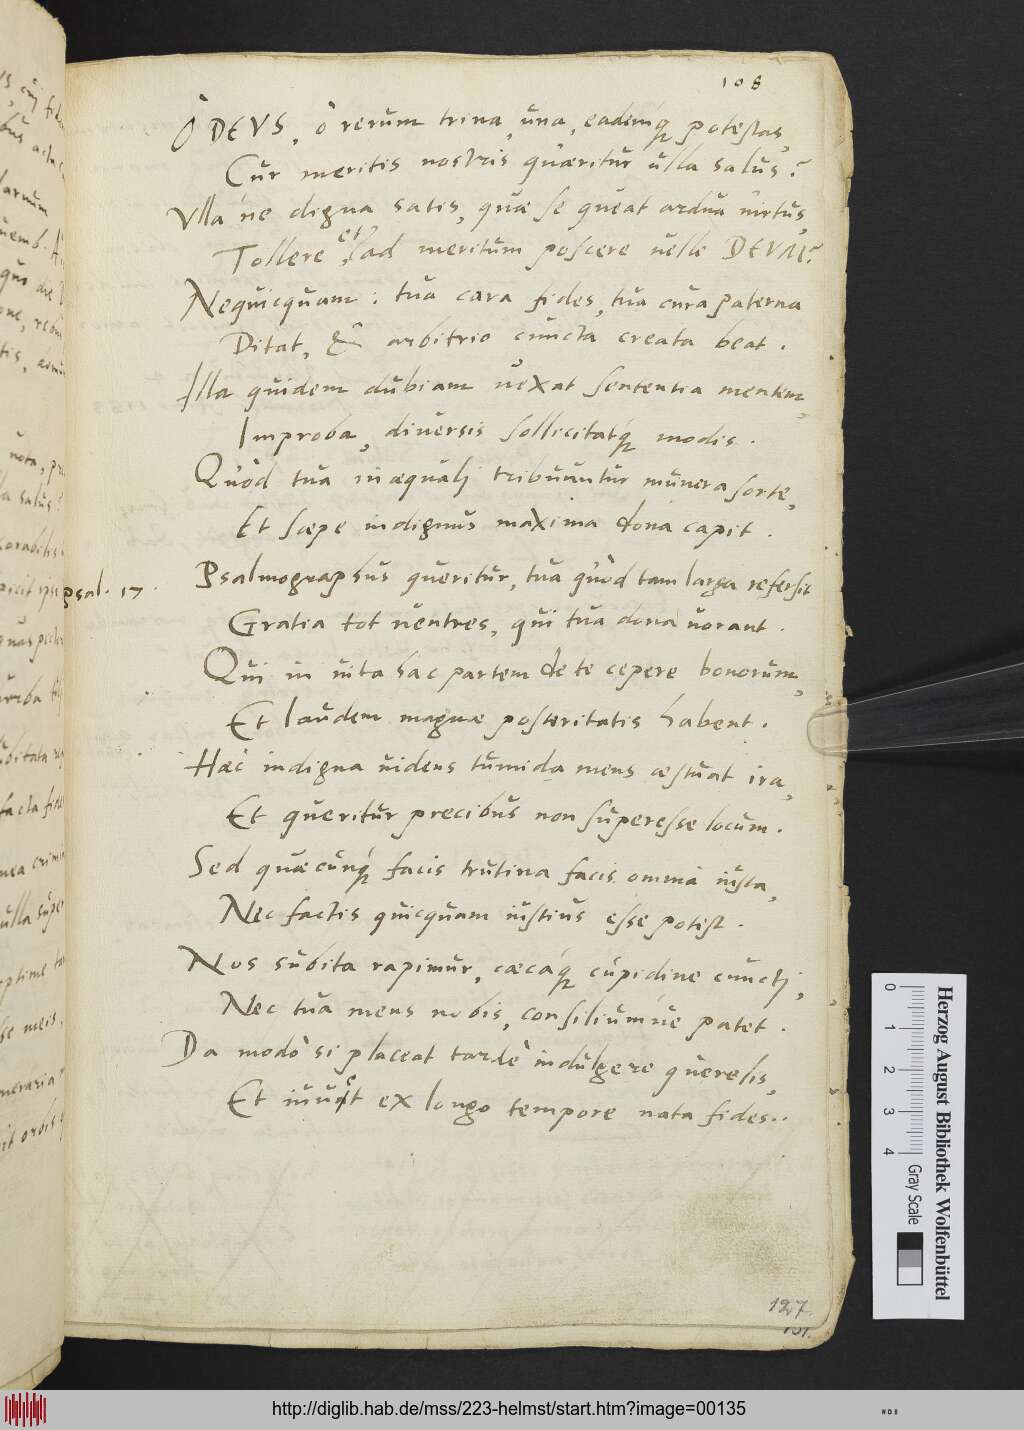 108
Ô DEVS, ô rerum trina, una, eademq́ue potestas,
Cur meritis nostris quæritur ulla salus?
Vlla ne digna satis, quæ se queat ardua uirtus,
Tollere, et ad meritum poscere uelle DEVM?
Nequicquam: tua cara fides, tua cura paterna
Ditat, & arbitrio cuncta creata beat.
Illa quidem dubiam uexat sententia mentem,
Improba, diuersis sollicitatq́ue modis.
Quòd tua inæquali tribuuntur munera sorte,
Et sæpe indignus maxima dona capit.
psal. 17
Psalmographus queritur, tua quòd tam larga refersit
Gratia tot uentres, qui tua dona uorant.
Qui in uita hac partem de te cepere bonorum,
Et laudem magnæ posteritatis habent.
Hæc indigna uidens tumida mens æstuat ira,
Et queritur precibus non superesse locum.
Sed quæcunq́ue facis trutina facis omnia iusta,
Nec factis quicquam iustius esse potest.
Nos subita rapimur, cæcaq́ue cupidine cuncti;
Nec tua mens nobis, consiliumúe patet.
Da modò si placeat tardè indulgere querelis,
Et iuuet ex longo tempore nata fides..
127.
131.
Herzog August Bibliothek Wolfenbüttel
0 1 2 3 4
Gray Scale
http://diglib.hab.de/mss/223-helmst/start.htm?image=00135